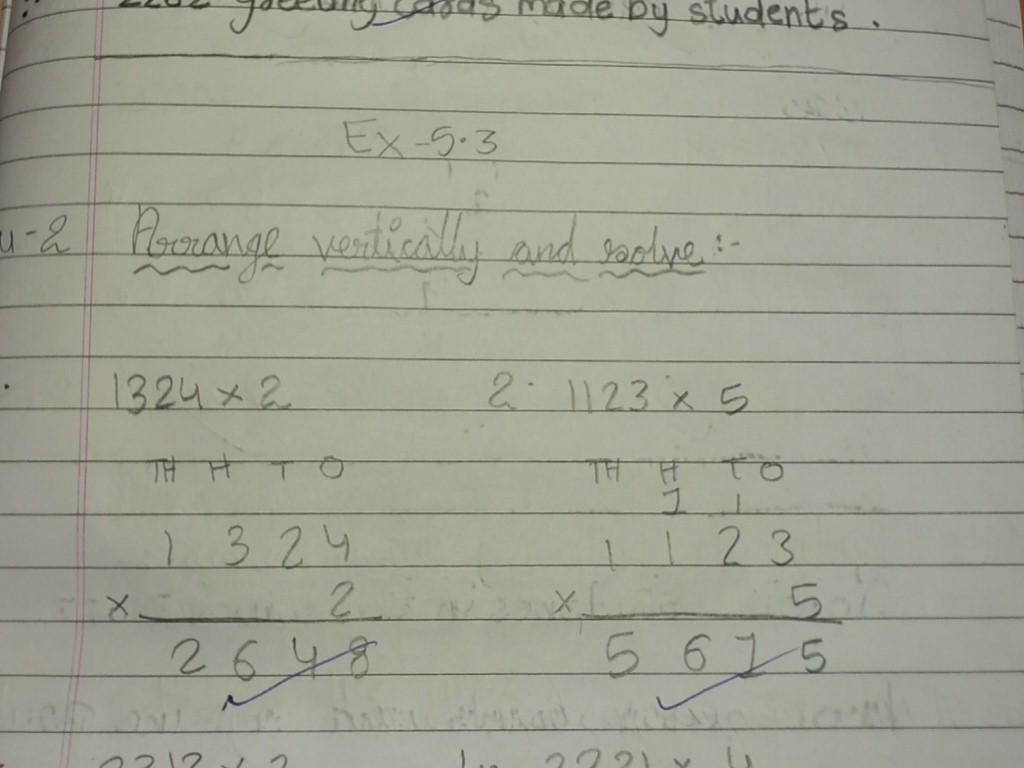 2202 greeting cards made by students.
Ex-5.3
u-2 Arrange vertically and solve:-
1324 x 2 2. 1123 x 5
TH H T O TH H T O
1 1
1 3 2 4 1 1 2 3
x 2 x 5
2 6 4 8 5 6 1 5
x 2 2221 x 4